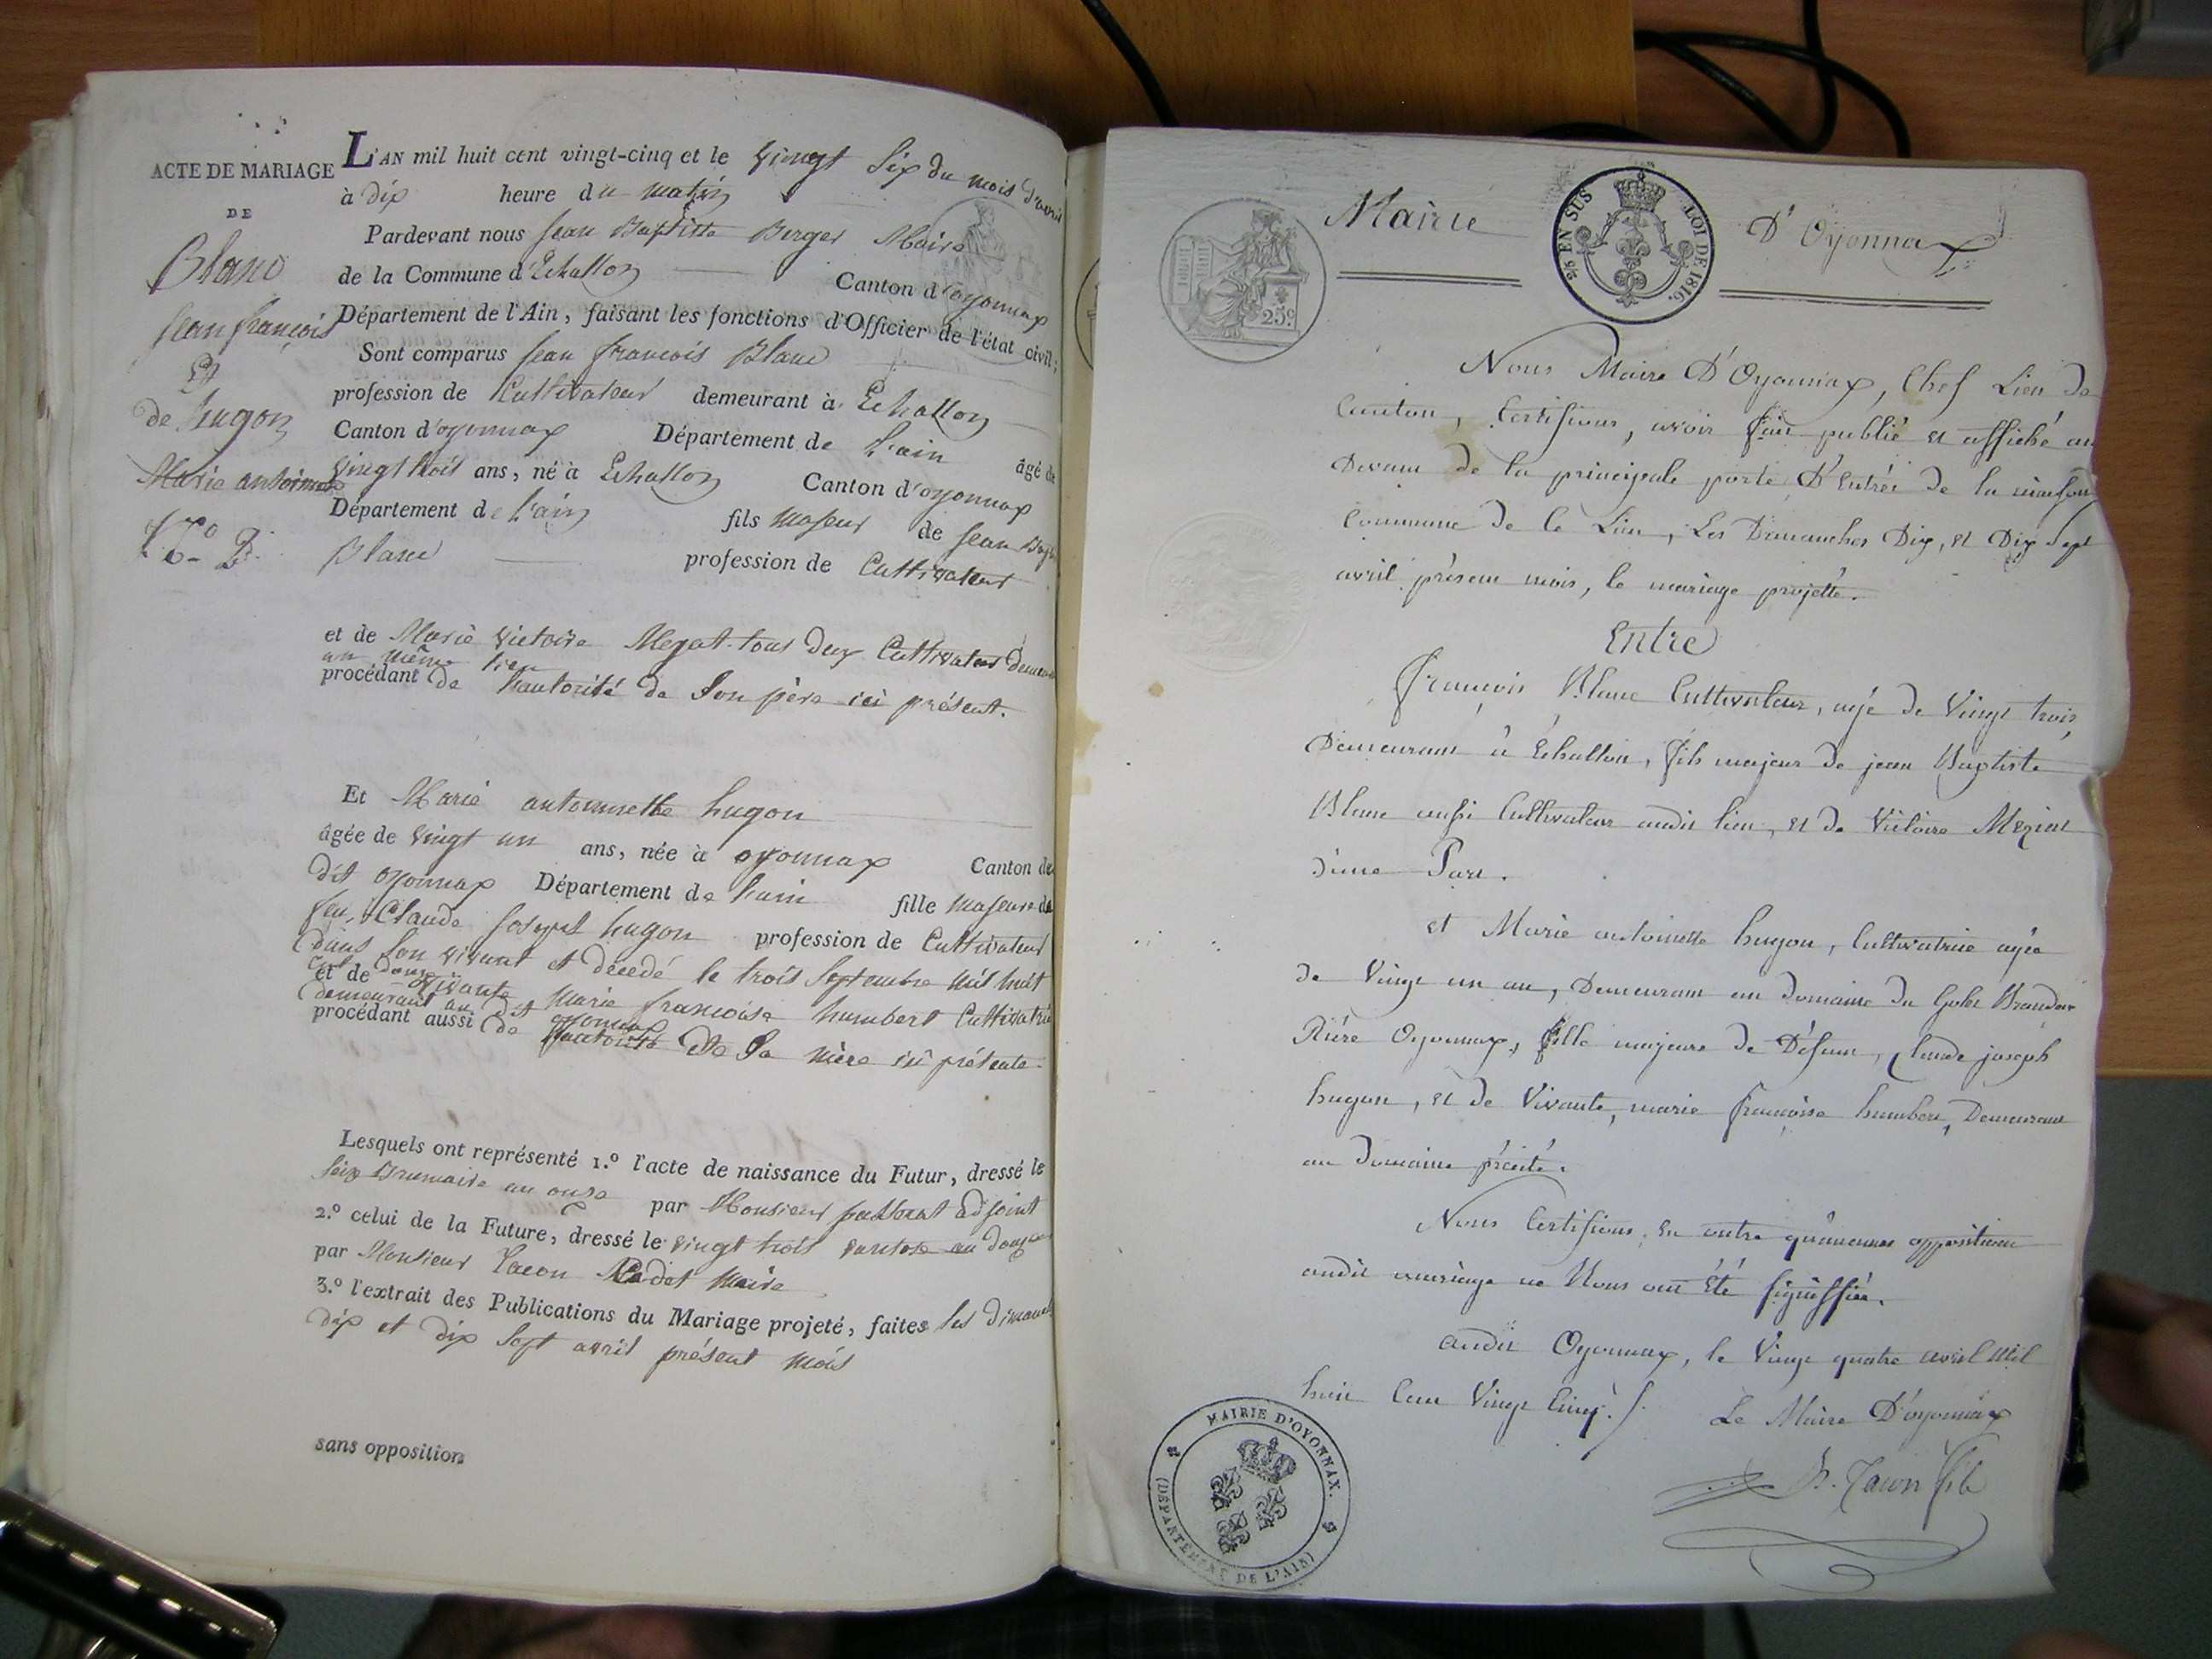 ACTE DE MARIAGE
DE
Blanc
Jean françois
Et
de hugon
Marie antoinette
N.o
L'AN mil huit cent vingt-cinq et le vingt Six du mois d'avril
à dix heure du matin
Pardevant nous Jean Baptiste Berger Maire
de la Commune d'Echallon Canton d'oyonnax
Département de l'Ain, faisant les fonctions d'Officier de l'état civil;
Sont comparus Jean francois Blanc
profession de Cultivateur demeurant à Echallon
Canton d'oyonnax Département de L'ain âgé de
vingt trois ans, né à Echallon Canton d'oyonnax
Département de L'ain fils Majeur de Jean Bapt
Blanc profession de Cultivateur
et de Marie Victoire Mezat tous deux Cultivateur demeurant
au même lieu
procédant de l'autorité de Son père ici présent.
Et Marie antoinnette hugon
âgée de vingt un ans, née à oyonnax Canton de
dit oyonnax Département de L'ain fille Majeure de
feu, Claude Joseph hugon profession de Cultivateur
dans Son vivant et décédé le trois Septembre Mil huit
cent douze
et de vivante Marie françoise humbert Cultivatrice
demeurant au dit oyonnax
procédant aussi de l'autorité de Sa Mère ici présente.
Lesquels ont représenté 1.o l'acte de naissance du Futur, dressé le
Seize Brumaire an onze par Monsieur passerat adjoint
2.o celui de la Future, dressé le vingt trois ventose an douze
par Monsieur Tacon Cadet Maire
3.o l'extrait des Publications du Mariage projeté, faites les dimanches
dix et dix Sept avril présent Mois
sans opposition
Mairie D'Oyonnax
EN SUS LOI DE 1816.
25c.
Nous Maire D'Oyonnax, Chef Lieu de
Canton, Certifions, avoir fait publié et affiché au
Devant de la principale porte D'Entrée de la maison
Commune de Ce Lieu, Les Dimanches Dix, et Dix Sept
avril présent mois, le mariage projetté.
Entre
François Blanc Cultivateur, agé de Vingt trois,
Demeurant à Echallon, fils majeur de jean Baptiste
Blanc aussi Cultivateur audit lieu, et de Victoire Meziat
d'une Part.
et Marie antoinette hugon, Cultivatrice agée
de Vingt un an, Demeurant au domaine du
Rière Oyonnax, fille majeure de Défunt, Claude joseph
hugon, et de Vivante, marie françoise humbert, Demeurant
au Domaine précité.
Nous Certifions, en outre qu'aucunes opposition
audit mariage ne Nous ont Été signiffiée.
audit Oyonnax, le Vingt quatre avril Mil
huit Cent Vingt Cinq.
Le Maire D'oyonnax
Tacon fils
MAIRIE D'OYONNAX.
(DÉPARTEMENT DE L'AIN)